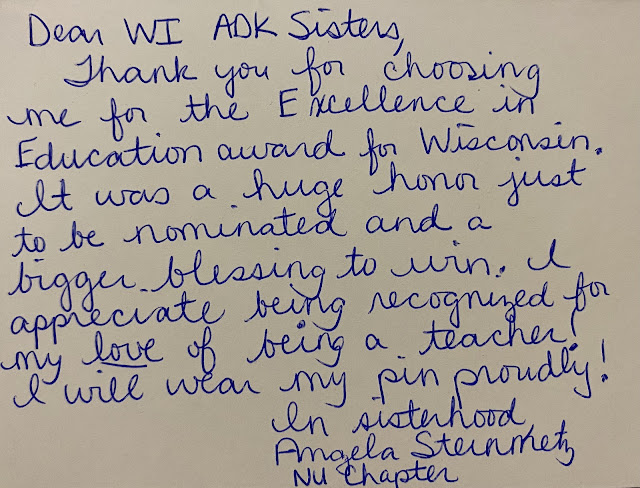 Dear WI ADK Sisters,
Thank you for choosing
me for the Excellence in
Education award for Wisconsin.
It was a huge honor just
to be nominated and a
bigger blessing to win. I
appreciate being recognized for
my love of being a teacher!
I will wear my pin proudly!
In sisterhood,
Angela Steinmetz
NU Chapter